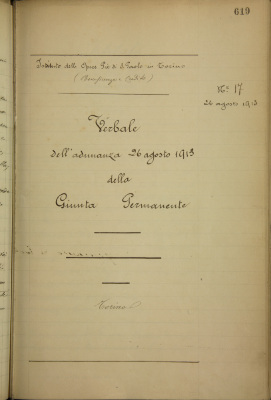 619
Istituto delle Opere Pie di S. Paolo in Torino
(Beneficenza e Credito)
N.° 17
26 agosto 1913
Verbale
dell'adunanza 26 agosto 1913
della
Giunta Permanente
Torino